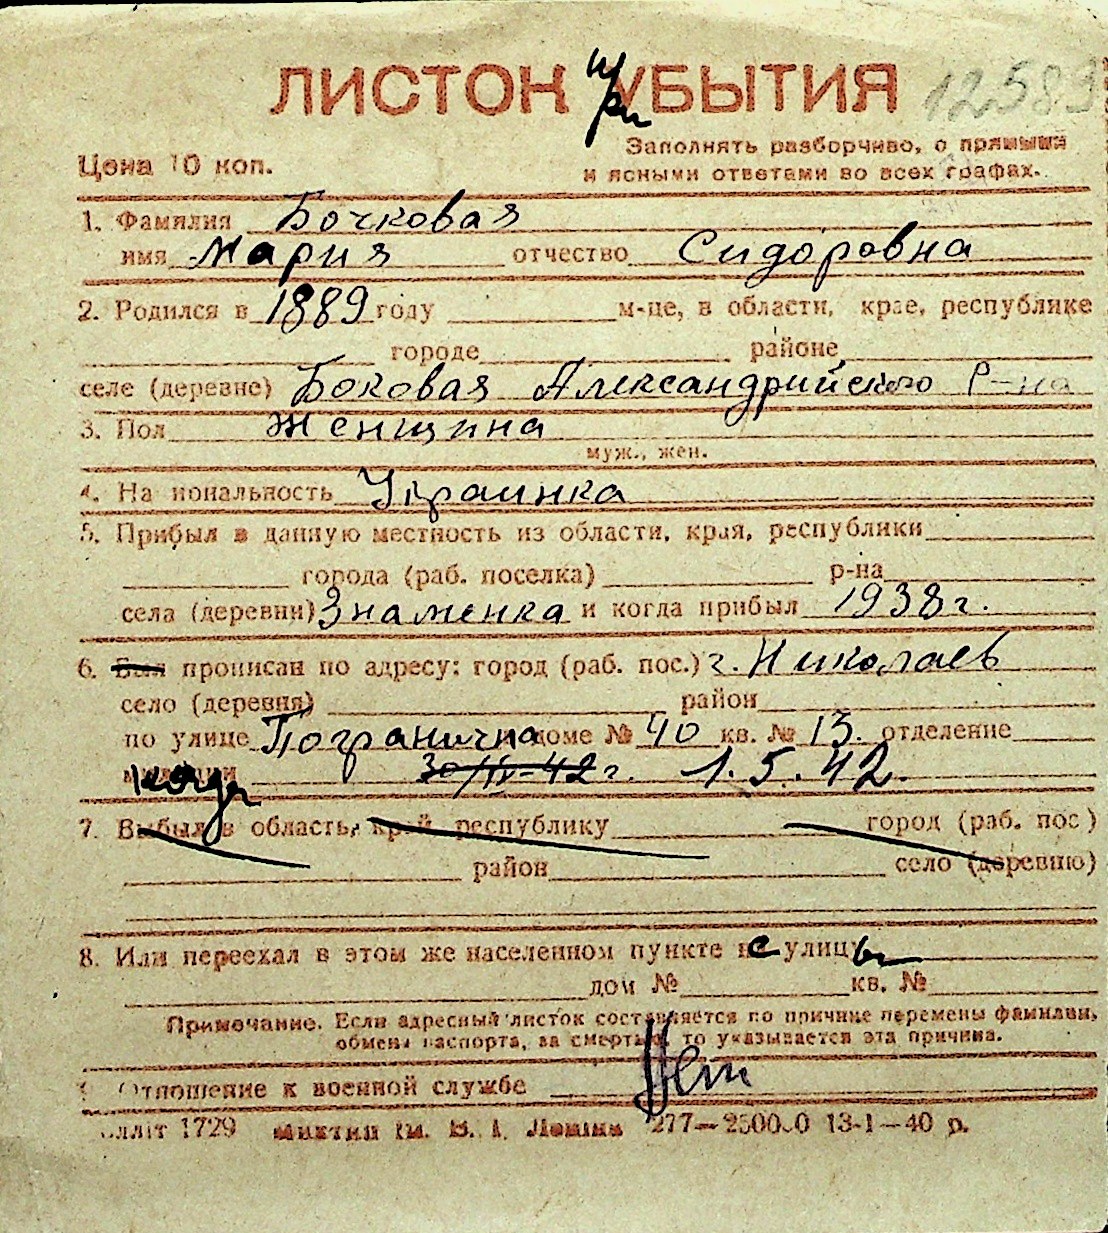 ЛИСТОН УБЫТИЯ
при
12589
Цена 10 коп.
Заполнять разборчиво, с прямыми
и ясными ответами во всех графах.
1. Фамилия Бочковая
имя Мария отчество Сидоровна
2. Родился в 1889 году м-це, в области, крае, республике
городе районе
селе (деревне) Боковая Александрийского Р-на
3. Пол Женщина
муж., жен.
4. На иональность Украинка
5. Прибыл в данную местность из области, края, республики
города (раб. поселка) р-на
села (деревни) Знаменка и когда прибыл 1938 г.
6. Был прописан по адресу: город (раб. пос.) г. Николаев
село (деревня) район
по улице Погранична доме № 40 кв. № 13. отделение
милиции когда 30/IV-42 г. 1.5.42.
7. Выбыл в область, край, республику город (раб. пос)
район село (деревню)
8. Или переехал в этом же населенном пункте с улицы
дом № кв. №
Примечание. Если адресный листок составляется по причине перемены фамилии,
обмена паспорта, за смертью, то указывается эта причина.
9 Отношение к военной службе Нет
1729 277—250000 13-1—40 р.